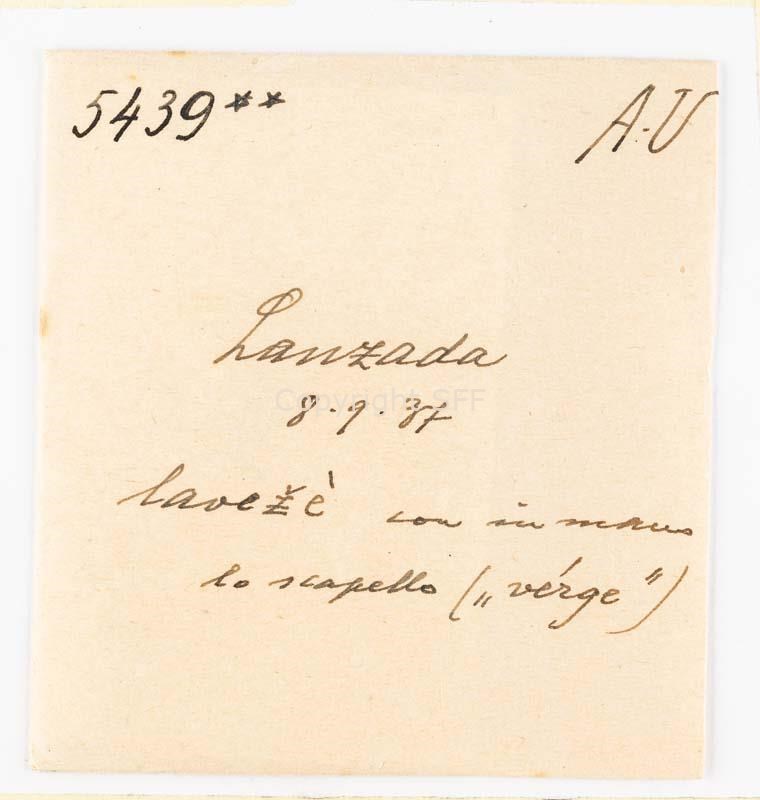 5439** A.-U
Lanzada
Copyright SFF
8.9.37
lavežè con in mano
lo scapello („vérge”)